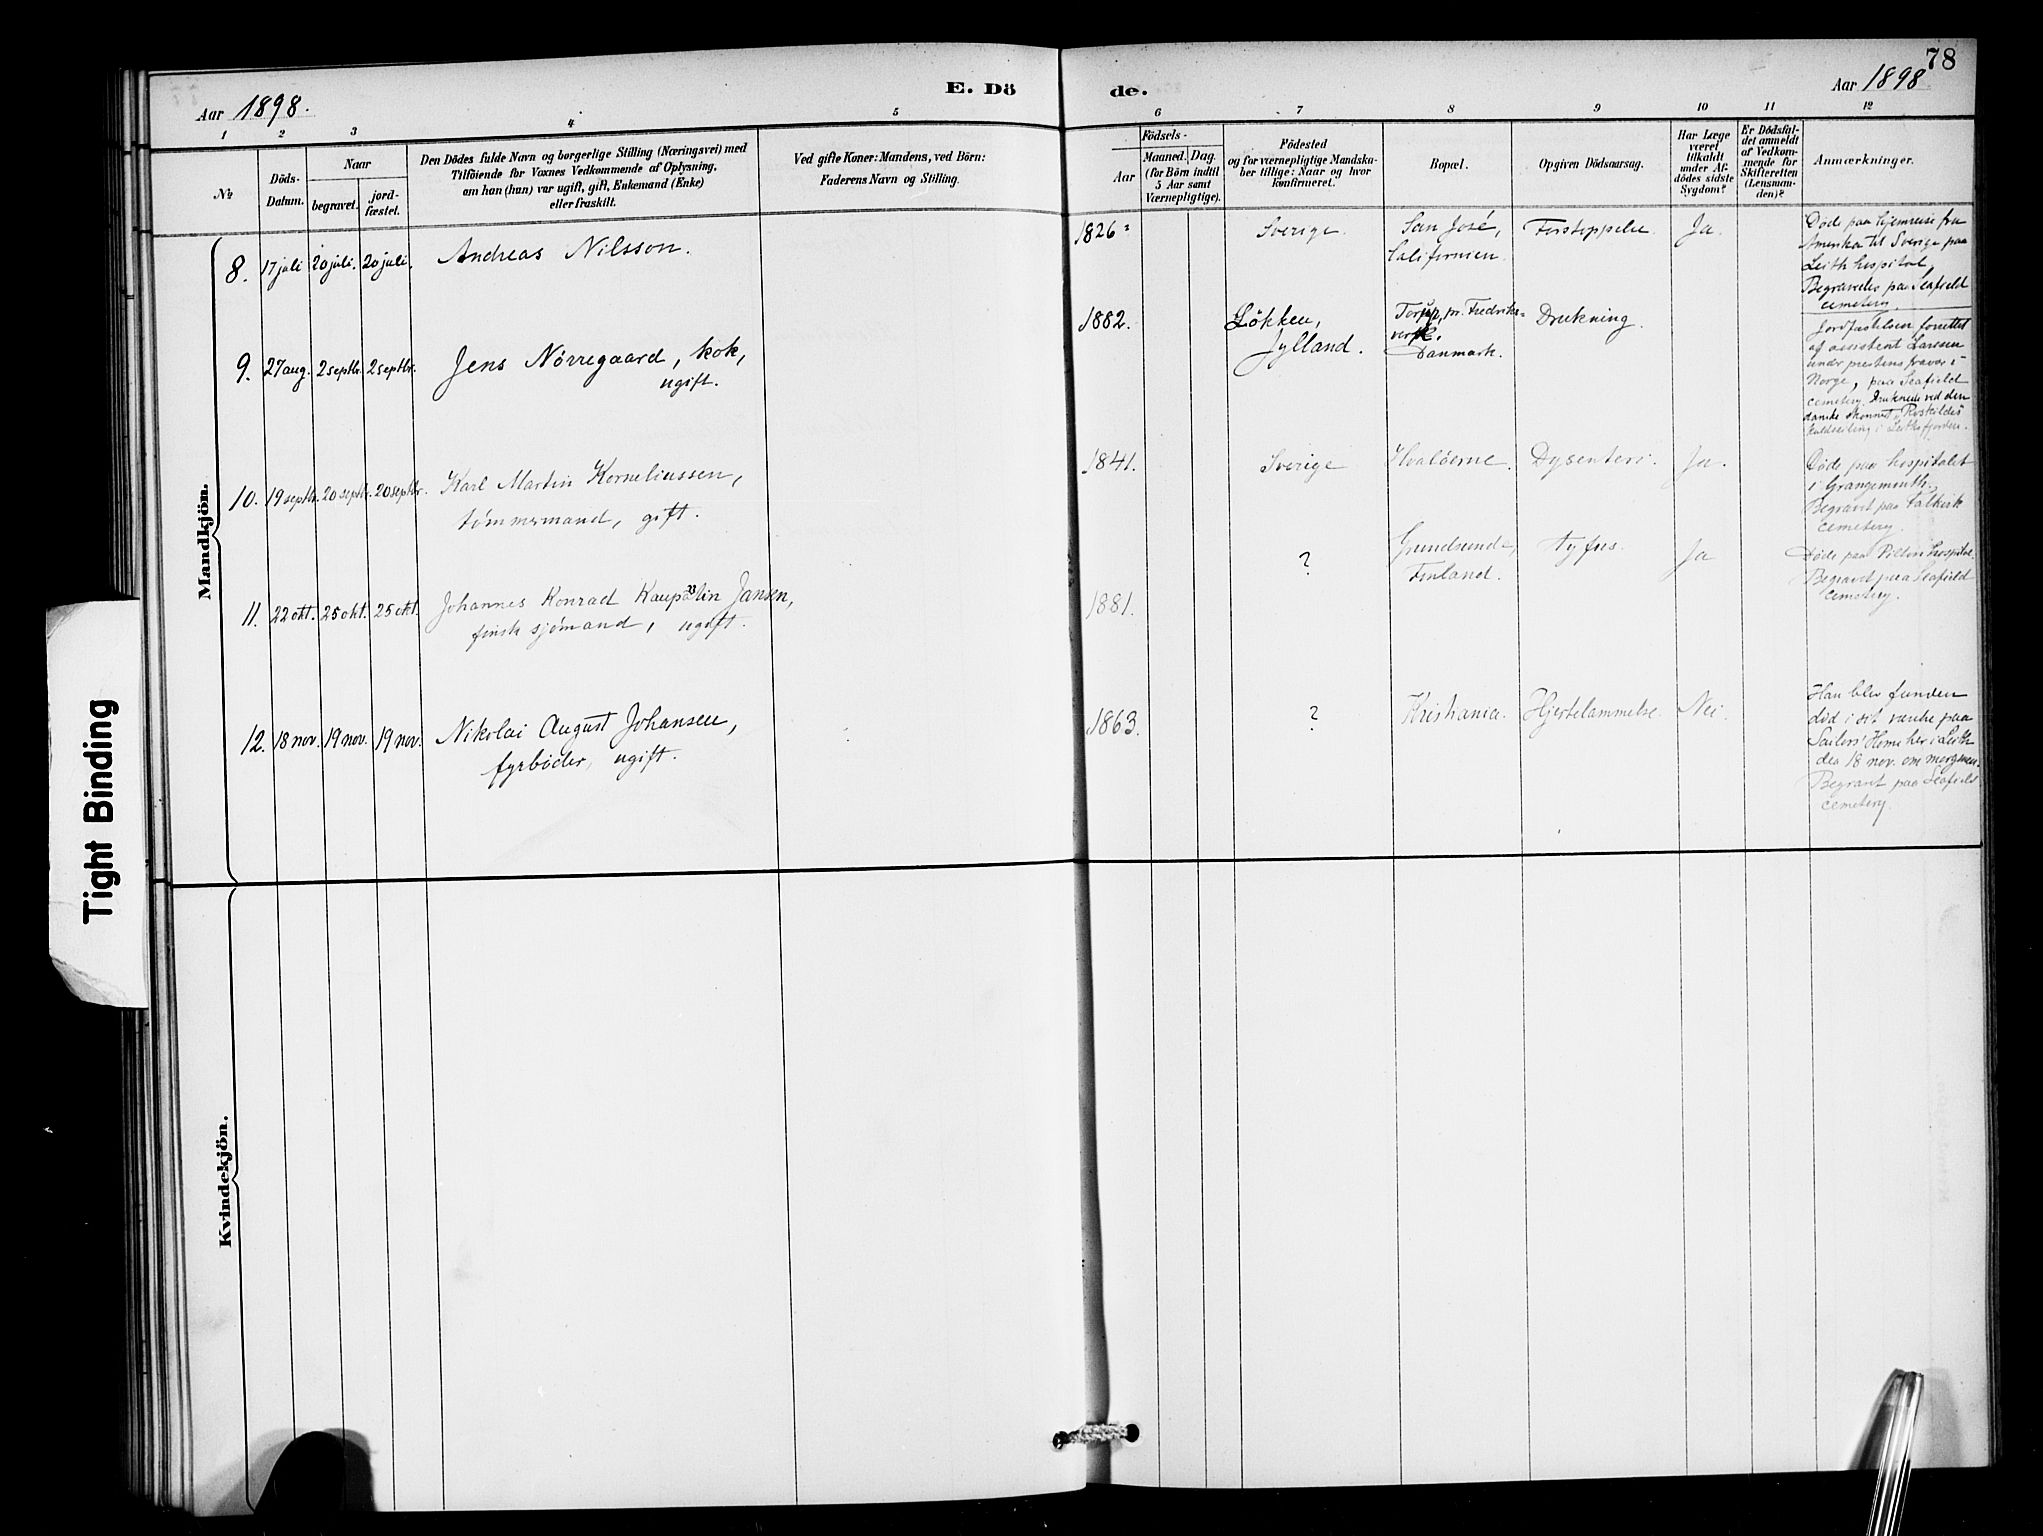 78
Aar 1898.
E. Dö
de.
Aar 1898
1 2 3 4 5
6 7 8 9 10 11 12
№
Döds-
Datum.
Naar
begravet.
jord-
fæstet.
Den Dödes fulde Navn og borgerlige Stilling (Næringsvei) med
Tilföiende for Voxnes Vedkommende af Oplysning,
om han (hun) var ugift, gift, Enkemand (Enke)
eller fraskilt.
Ved gifte Koner: Mandens, ved Börn:
Faderens Navn og Stilling.
Födsels-
Aar
Maaned. Dag.
(for Börn indtil
5 Aar samt
Værnepligtige).
Födested
og for værnepligtige Mandska-
ber tillige: Naar og hvor
konfirmeret.
Bopæl.
Opgiven Dödsaarsag.
Har Læge
været
tilkaldt
under Af-
dödes sidste
Sygdom?
Er Dödsfal-
det anmeldt
af Vedkom-
mende for
Skifteretten
(Lensman-
den)?
Anmærkninger.
Mandkjön.
8. 17 juli 20 juli. 20 juli. Andreas Nilsson.
1826 Sverige. San José,
Californien.
Forstoppelse. Ja.
Døde paa hjemreise fra
Amerika til Sverige paa
Leith hospital.
Begravedes paa Seafield
cemetery.
9. 27 aug. 2 septbr. 2 septbr. Jens Nørregaard, kok,
ugift.
1882. Løkken,
Jylland.
Torup, pr. Fredriks-
værk,
Danmark.
Drukning.
Jordfæstelsen forrettet
af assistent Larssen
under prestens fravær i
Norge, paa Seafield
cemetery. Druknede ved den
danske skonnert "Roskilde's"
kuldseiling i Leithsfjorden.
10. 19 septbr. 20 septbr. 20 septbr. Karl Martin Korneliussen,
tømmermand, gift.
1841. Sverige Hvaløerne. Dysenteri. Ja.
Døde paa hospitalet
i Grangemouth.
Begravet paa Falkirk
cemetery.
11. 22 okt. 25 okt. 25 okt. Johannes Konrad Jansen,
finsk sjømand, ugift.
1881. ? Grundsunda,
Finland.
Tyfus. Ja
Døde paa Pilton hospital.
Begravet paa Seafield
cemetery.
12. 18 nov. 19 nov. 19 nov. Nikolai August Johansen,
fyrbøder, ugift.
1863. ? Kristiania. Hjertelammelse. Nei.
Han blev funden
død i sit værelse paa
Sailors' Home her i Leith
den 18 nov. om morgenen.
Begravet paa Seafield
cemetery.
Kvindekjön.
Tight Binding